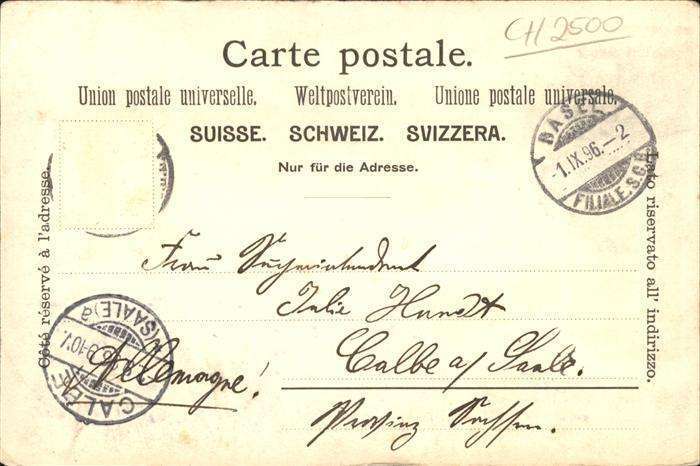 CH 2500
Carte postale.
Union postale universelle. Weltpostverein. Unione postale universale.
SUISSE. SCHWEIZ. SVIZZERA.
Nur für die Adresse.
Côté réservé à l'adresse.
Lato riservato all' indirizzo.
BASEL
-1.IX.96.-2
FILIALE.S.C.B
Frau Superintendent
Julie Hundt
Calbe a/ Saale.
Allemagne!
Provinz Sachsen.
CALBE (SAALE) a